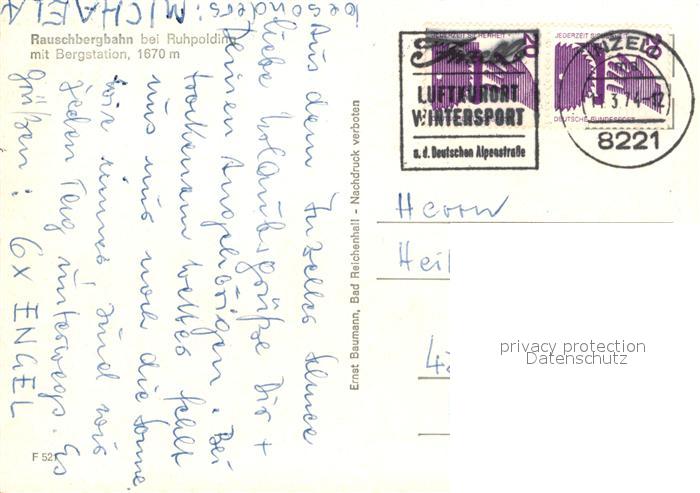 besonders: MICHAELA
Rauschbergbahn bei Ruhpolding
mit Bergstation, 1670 m
Aus dem Inzeller
liebe Urlaubsgrüße Dir +
Deinen Angehörigen. Bei
trockenem Wetter fehlt
uns nur noch die Sonne
wir sind wir
jeden Tag unterwegs. Es
grüßen: 6x ENGEL
F 521
Ernst Baumann, Bad Reichenhall - Nachdruck verboten
JEDERZEIT SICHERHEIT
JEDERZEIT
20
DEUTSCHE BUNDESPOST
Inzell
LUFTKURORT
WINTERSPORT
a. d. Deutschen Alpenstraße
INZELL
3.74-12
8221
Herrn
Hei
privacy protection
Datenschutz